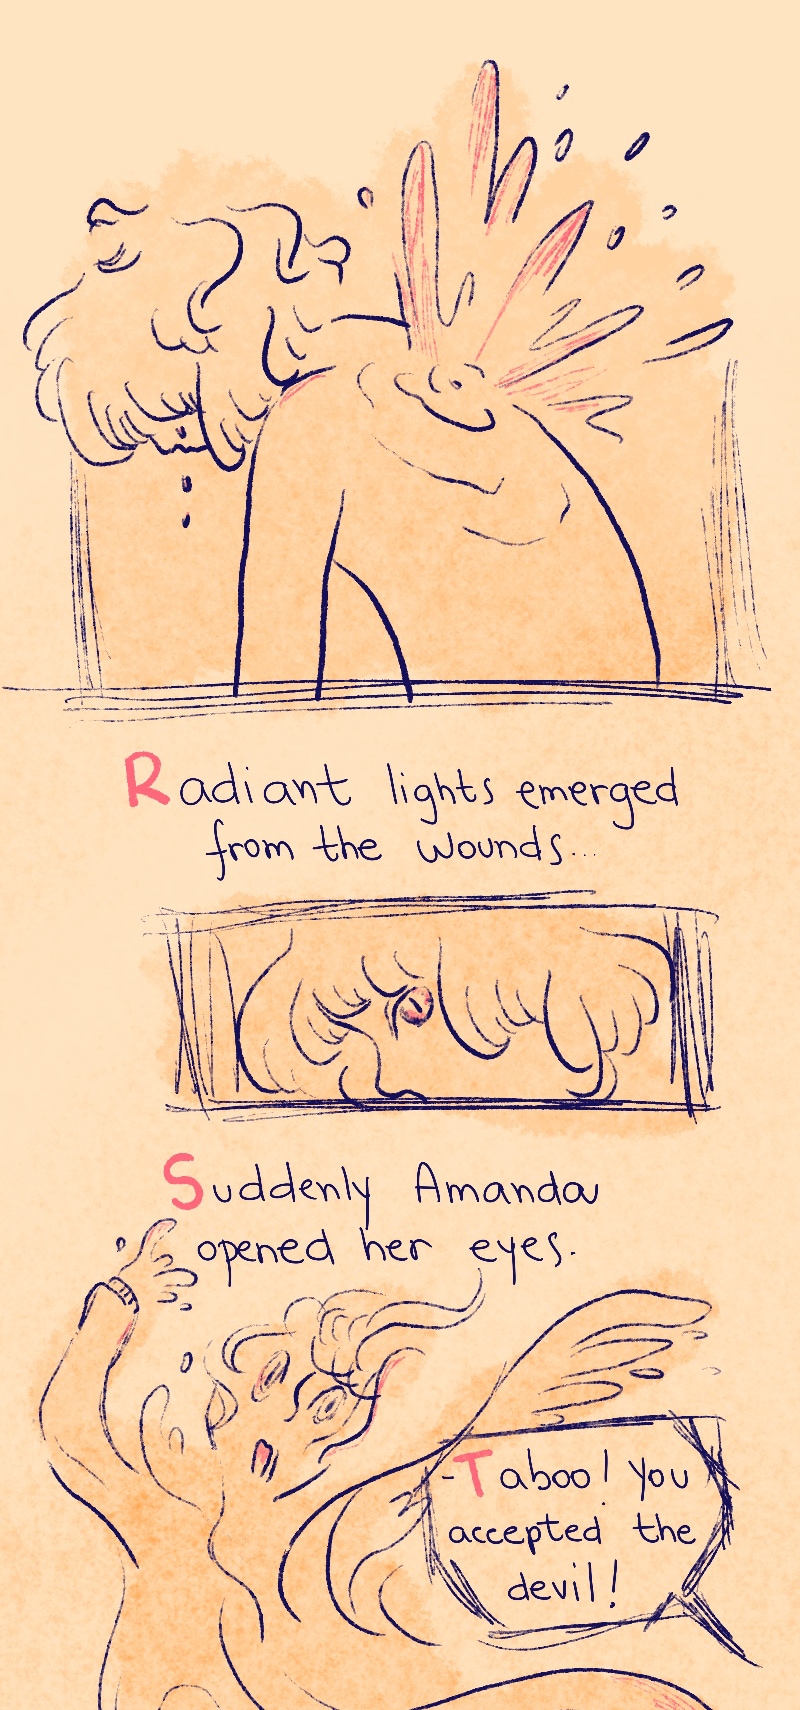 Radiant lights emerged
from the wounds...
Suddenly Amanda
opened her eyes.
-Taboo! You
accepted the
devil!